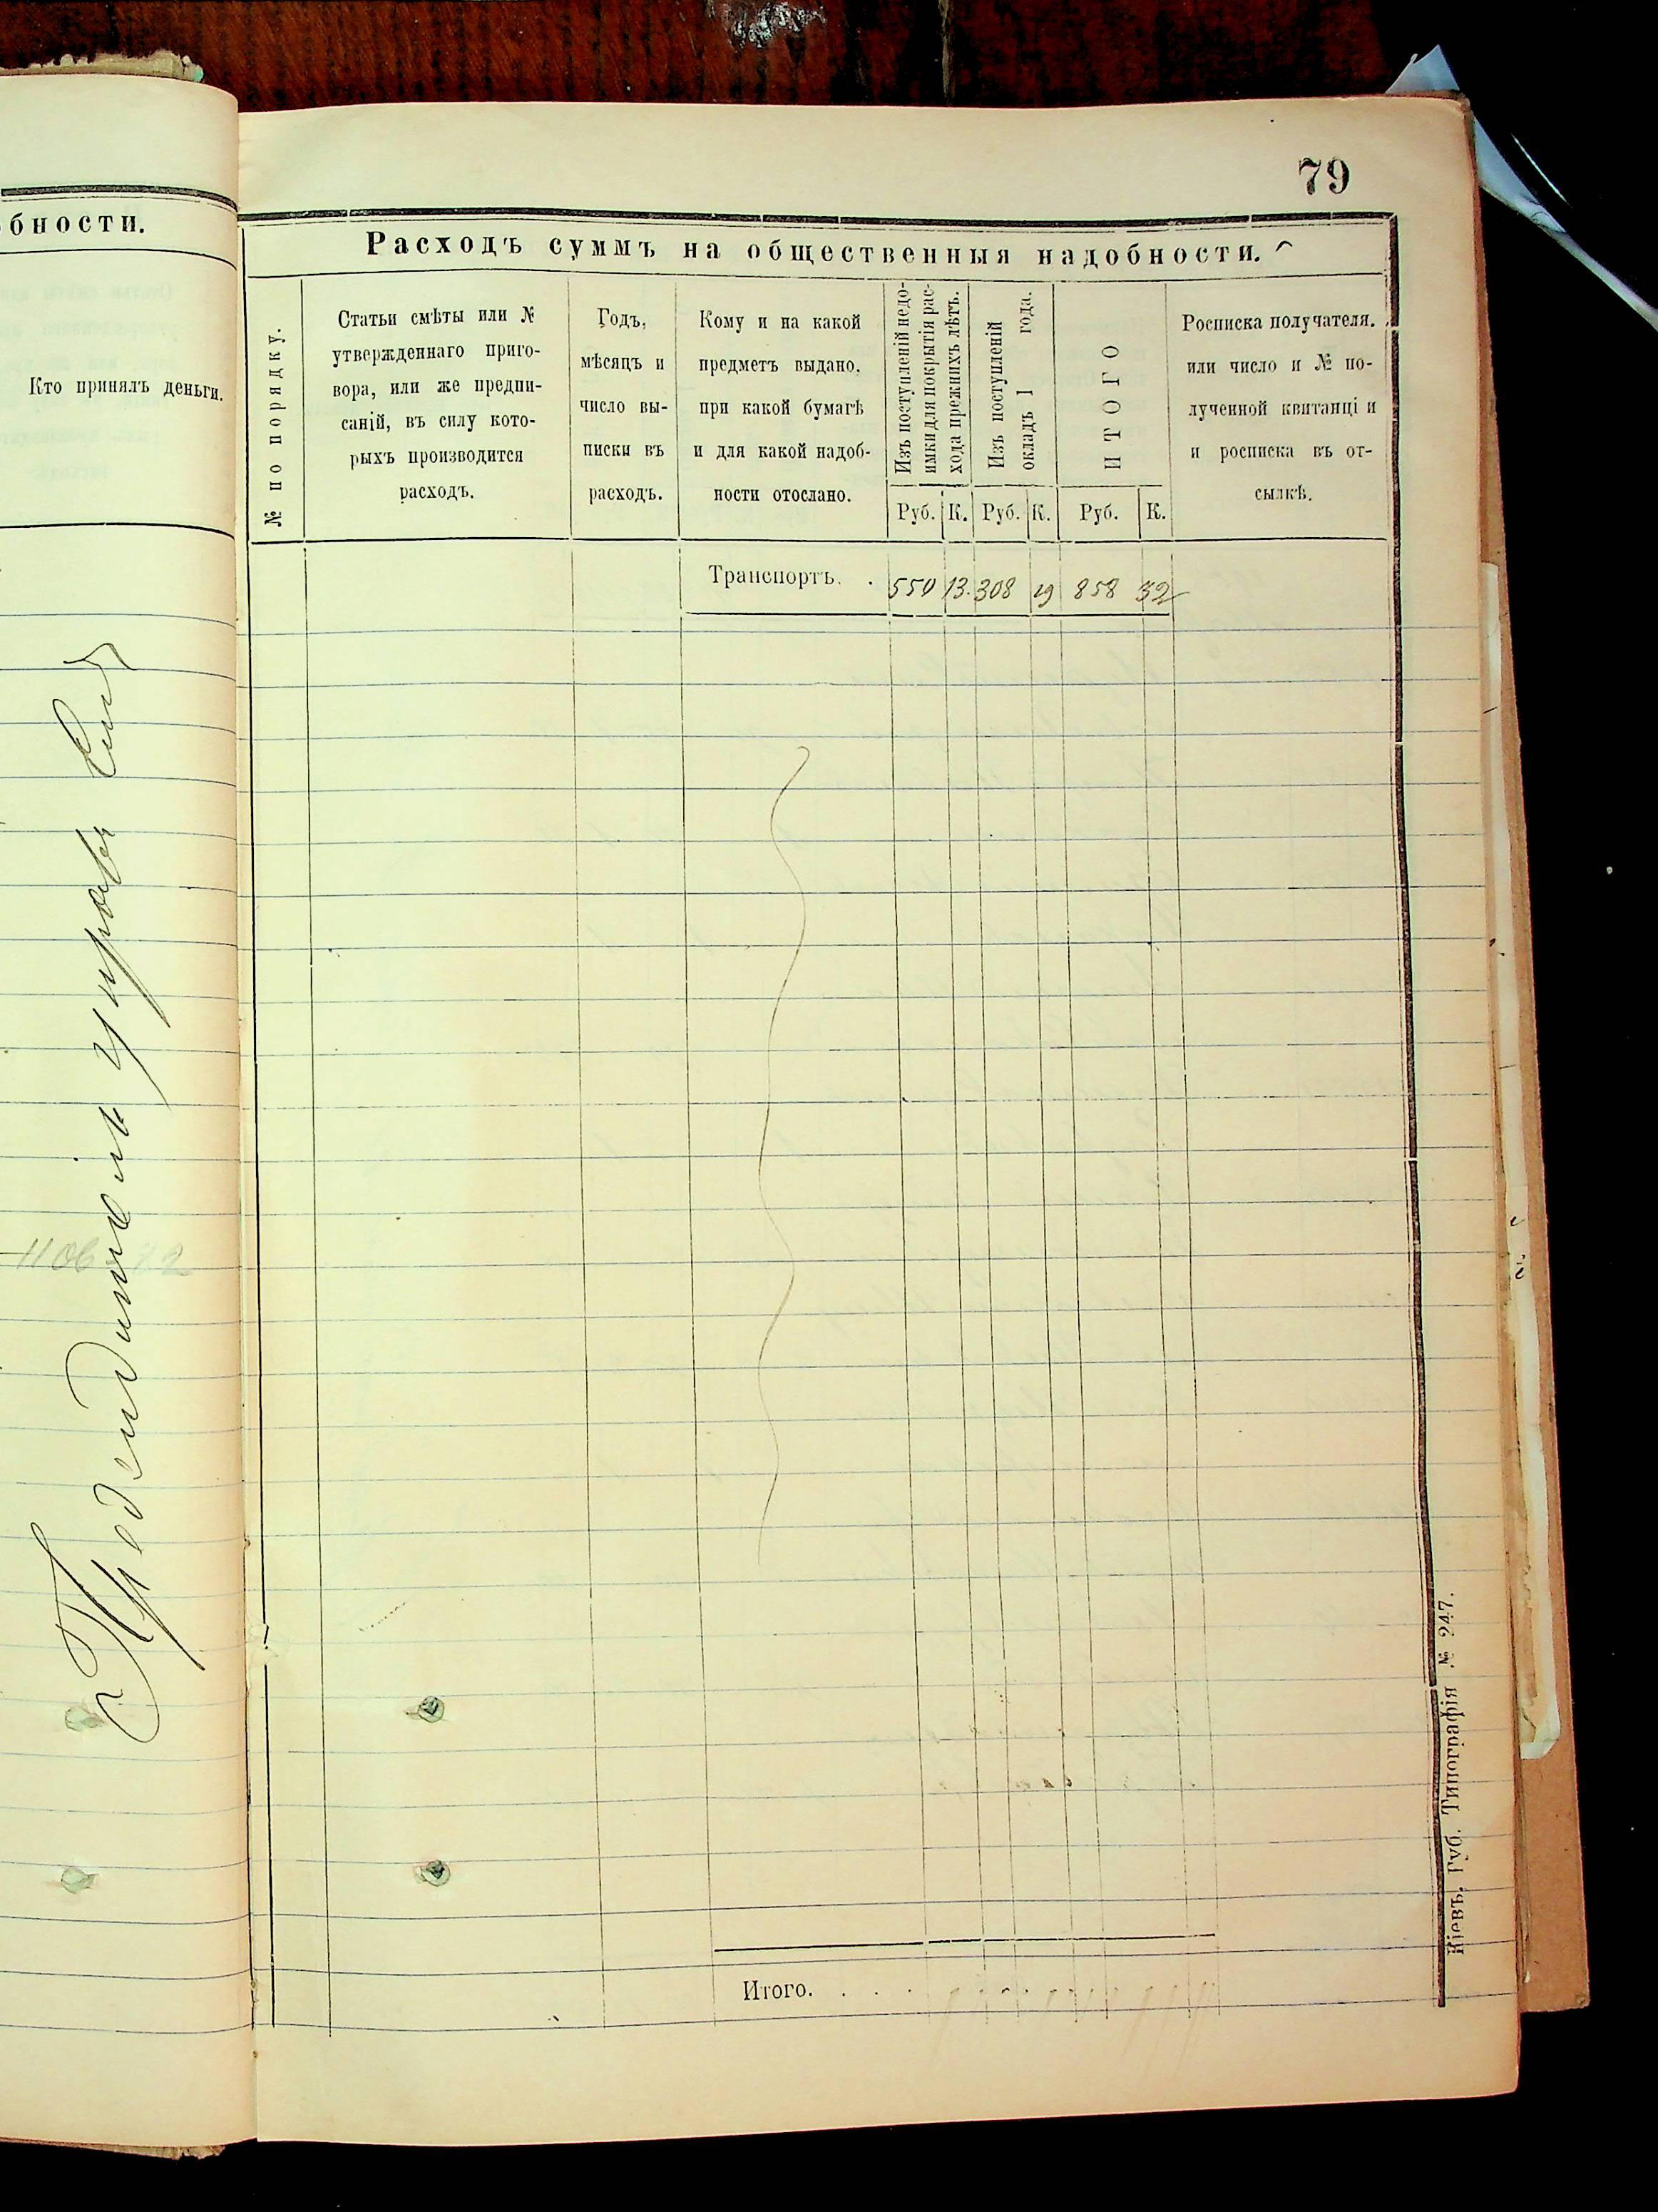 79
бности.
Кто принялъ деньги.
Расходъ суммъ на общественныя надобности.
№ по порядку.
Статьи смѣты или №
утвержденнаго приго-
вора, или же предпи-
саній, въ силу кото-
рыхъ производится
расходъ.
Годъ,
мѣсяцъ и
число вы-
писки въ
расходъ.
Кому и на какой
предметъ выдано.
при какой бумагѣ
и для какой надоб-
ности отослано.
Изъ поступленій недо-
имки для покрытія рас-
хода прежнихъ лѣтъ.
Изъ поступленій
окладъ 1 года.
ИТОГО
Росписка получателя.
или число и № по-
лученной квитанці и
и росписка въ от-
сылкѣ.
Руб. К. Руб. К. Руб. К.
Транспортъ. . 550 13. 308 19 858 32
Итого. . . .
Кіевъ. Губ. Типографія № 247.